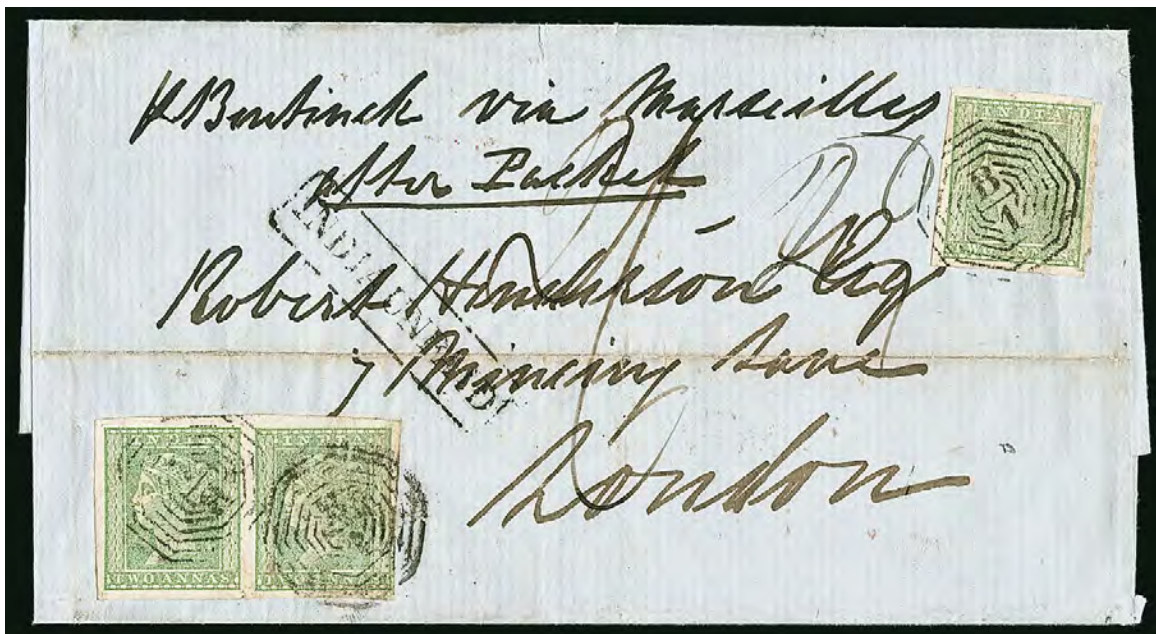 p Bentinck via Marseilles
after Packet
INDIA UNPAID
Robert Henderson Esq
7 Mincing Lane
London
INDIA
B
1
TWO ANNAS
INDIA
TWO ANNAS
INDIA